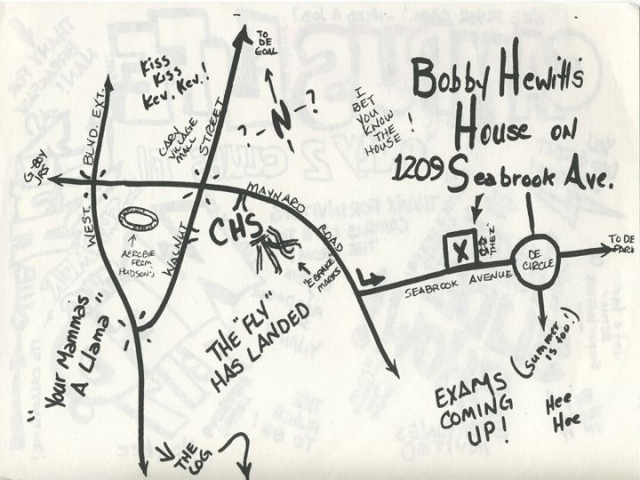 Bobby Hewitt's
House on
1209 Seabrook Ave.
TO DE
GOAL
Kiss
Kiss
Kev, Kev!
I
BET
YOU
KNOW
THE
HOUSE!
?--N--?
CARY
VILLAGE
MALL
WEST. BLVD. EXT.
WALNUT STREET
MAYNARD ROAD
CHS
AEROBIE
FROM
HUDSON'S
"EBRAKE"
MARKS
X
DE
CIRCLE
TO DE
PARK
SEABROOK AVENUE
"Your Mammas
A Llama"
THE "FLY"
HAS LANDED
THE
LOG
EXAMS
COMING
UP!
(summer
is too!)
Hee
Hee